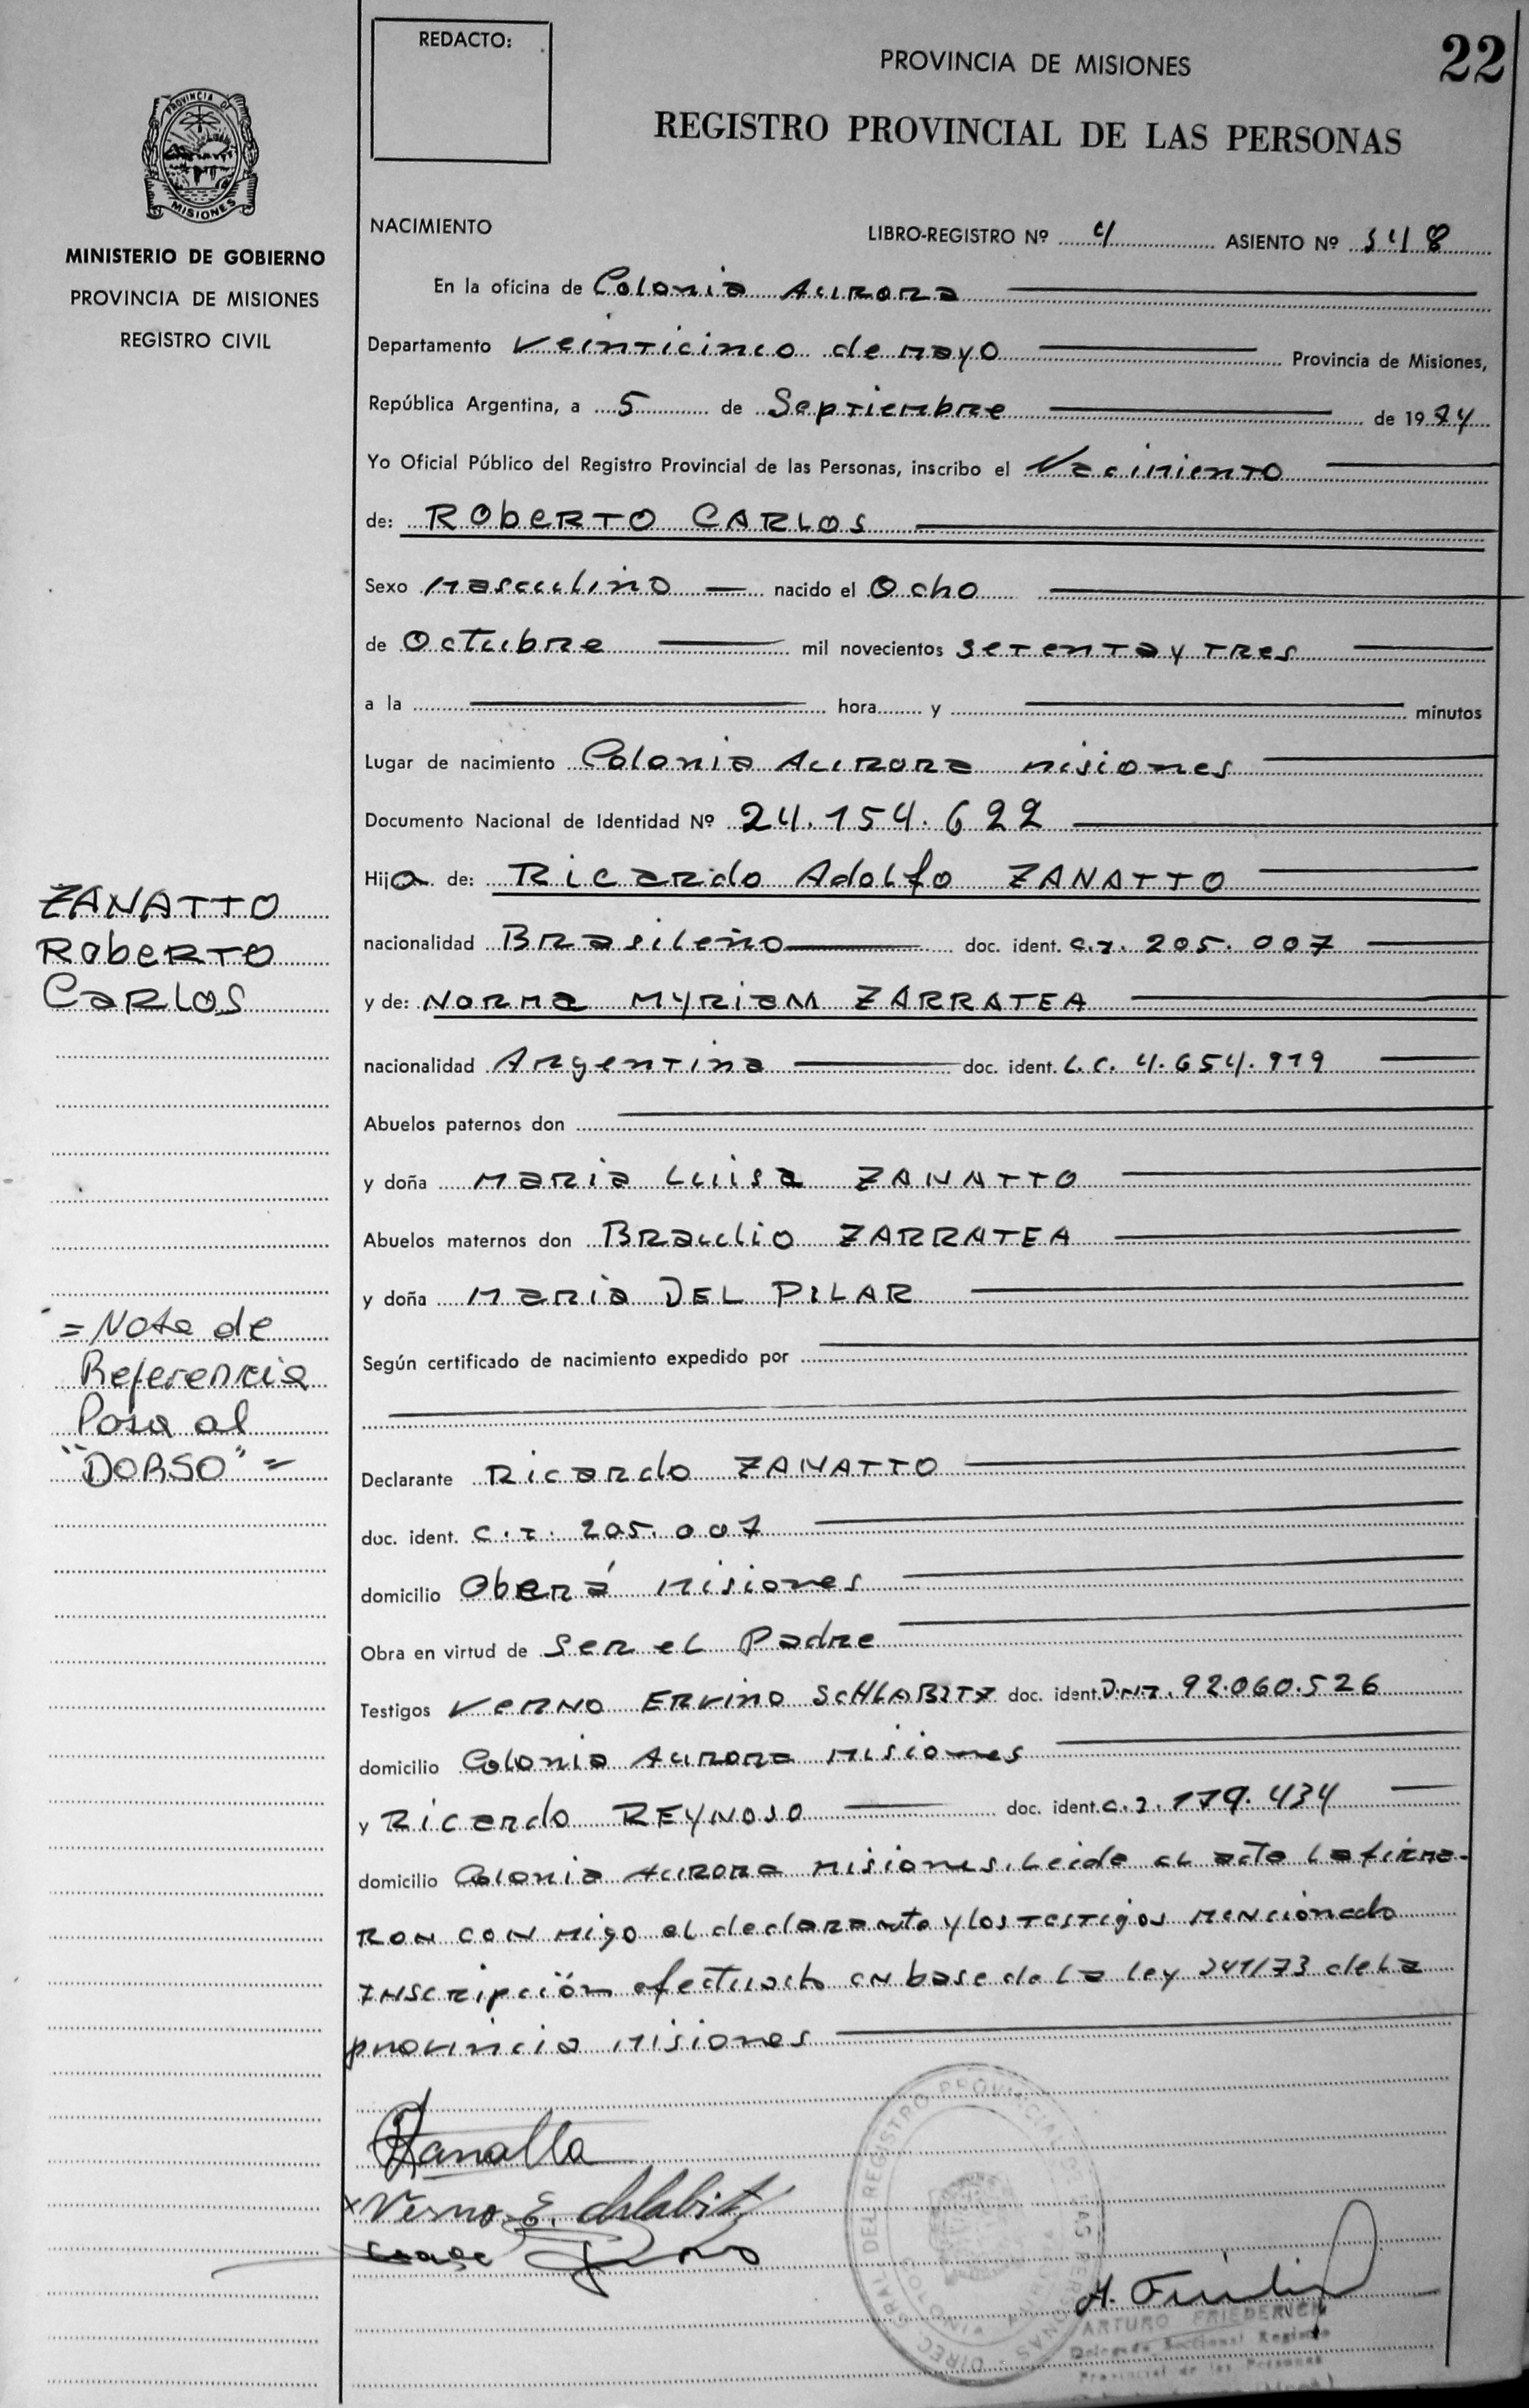 REDACTO:
PROVINCIA DE MISIONES
22
REGISTRO PROVINCIAL DE LAS PERSONAS
PROVINCIA DE
MISIONES
MINISTERIO DE GOBIERNO
PROVINCIA DE MISIONES
REGISTRO CIVIL
NACIMIENTO
LIBRO-REGISTRO Nº 4 ASIENTO Nº 548
En la oficina de Colonia Aurora
Departamento Veinticinco de mayo Provincia de Misiones,
República Argentina, a 5 de Septiembre de 1974
Yo Oficial Público del Registro Provincial de las Personas, inscribo el Nacimiento
de: ROBERTO CARLOS
Sexo Masculino nacido el Ocho
de Octubre mil novecientos setenta y tres
a la hora y minutos
Lugar de nacimiento Colonia Aurora misiones
Documento Nacional de Identidad Nº 24.154.622
Hijo de: Ricardo Adolfo ZANATTO
nacionalidad Brasileño doc. ident. C.I. 205.007
y de: Norma Myriam ZARRATEA
nacionalidad Argentina doc. ident. L.C. 4.654.919
Abuelos paternos don
y doña Maria Luisa ZANATTO
Abuelos maternos don Braulio ZARRATEA
y doña Maria DEL PILAR
Según certificado de nacimiento expedido por
Declarante Ricardo ZANATTO
doc. ident. C.I. 205.007
domicilio Oberá Misiones
Obra en virtud de ser el Padre
Testigos Verno Ervino SCHLABITZ doc. ident. D.N.I. 92.060.526
domicilio Colonia Aurora Misiones
y Ricardo REYNOSO doc. ident. C.I. 179.434
domicilio Colonia Aurora misiones. Leida el acta la firma-
ron con migo el declarante y los testigos mencionado
Inscripción efectuado en base de la ley 241/73 de la
provincia Misiones
ZANATTO
Roberto
Carlos
= Nota de
Referencia
Pasa al
"DORSO" =
Zanatto
x Verno E. Schlabitz
DIREC. GRAL. DEL REGISTRO PROVINCIAL DE LAS PERSONAS
ARTURO FRIEDERICH
Delegado Seccional Registro
Provincial de las Personas